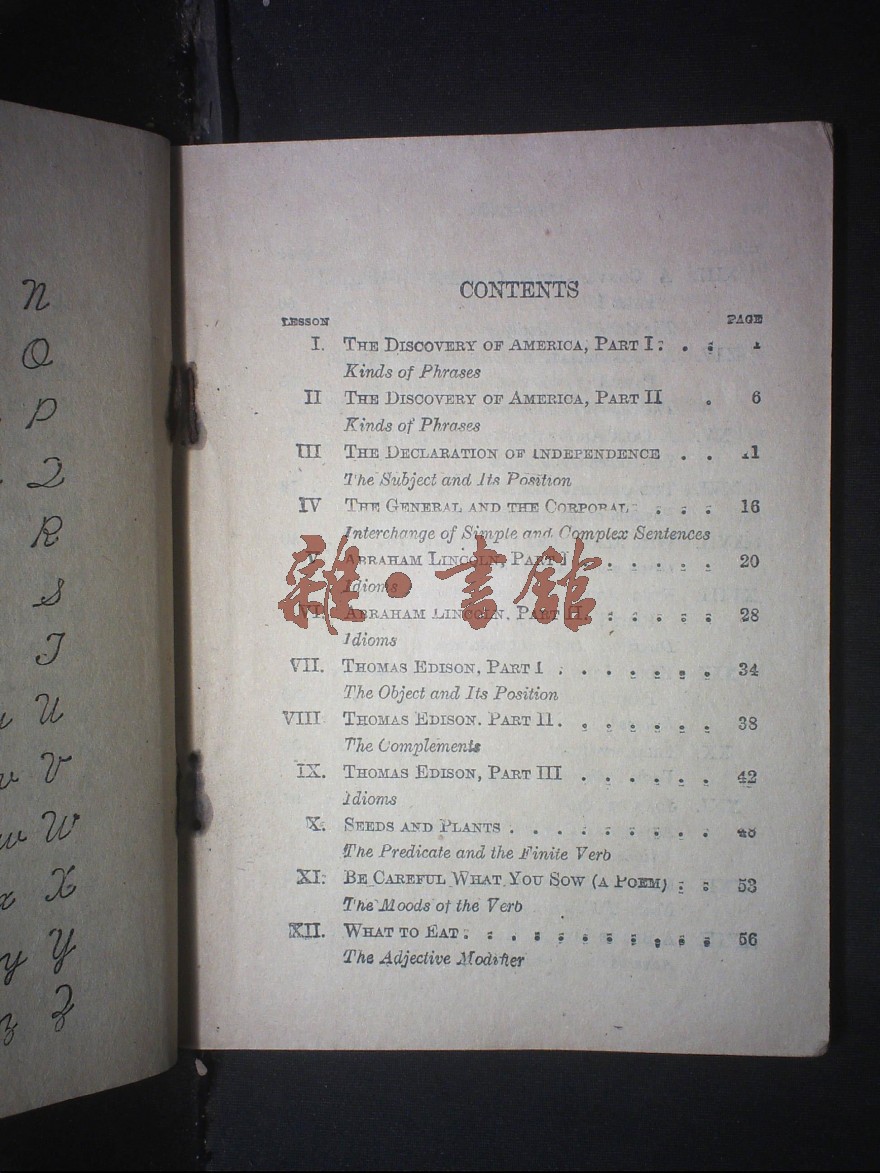 N
O
P
Q
R
S
T
U
v V
w W
x X
y Y
z Z
CONTENTS
LESSON PAGE
I. THE DISCOVERY OF AMERICA, PART I . .
Kinds of Phrases
II THE DISCOVERY OF AMERICA, PART II . 6
Kinds of Phrases
III THE DECLARATION OF INDEPENDENCE . . 11
The Subject and Its Position
IV THE GENERAL AND THE CORPORAL . . . 16
Interchange of Simple and Complex Sentences
V ABRAHAM LINCOLN, PART I . . . . . . 20
Idioms
VI. ABRAHAM LINCOLN, PART II. . . . . . 28
Idioms
VII. THOMAS EDISON, PART I . . . . . . . 34
The Object and Its Position
VIII THOMAS EDISON. PART II. . . . . . . 38
The Complements
IX. THOMAS EDISON, PART III . . . . . . 42
Idioms
X. SEEDS AND PLANTS . . . . . . . . .
The Predicate and the Finite Verb
XI. BE CAREFUL WHAT YOU SOW (A POEM) . . 53
The Moods of the Verb
XII. WHAT TO EAT . . . . . . . . . . . 56
The Adjective Modifier
雜·書館